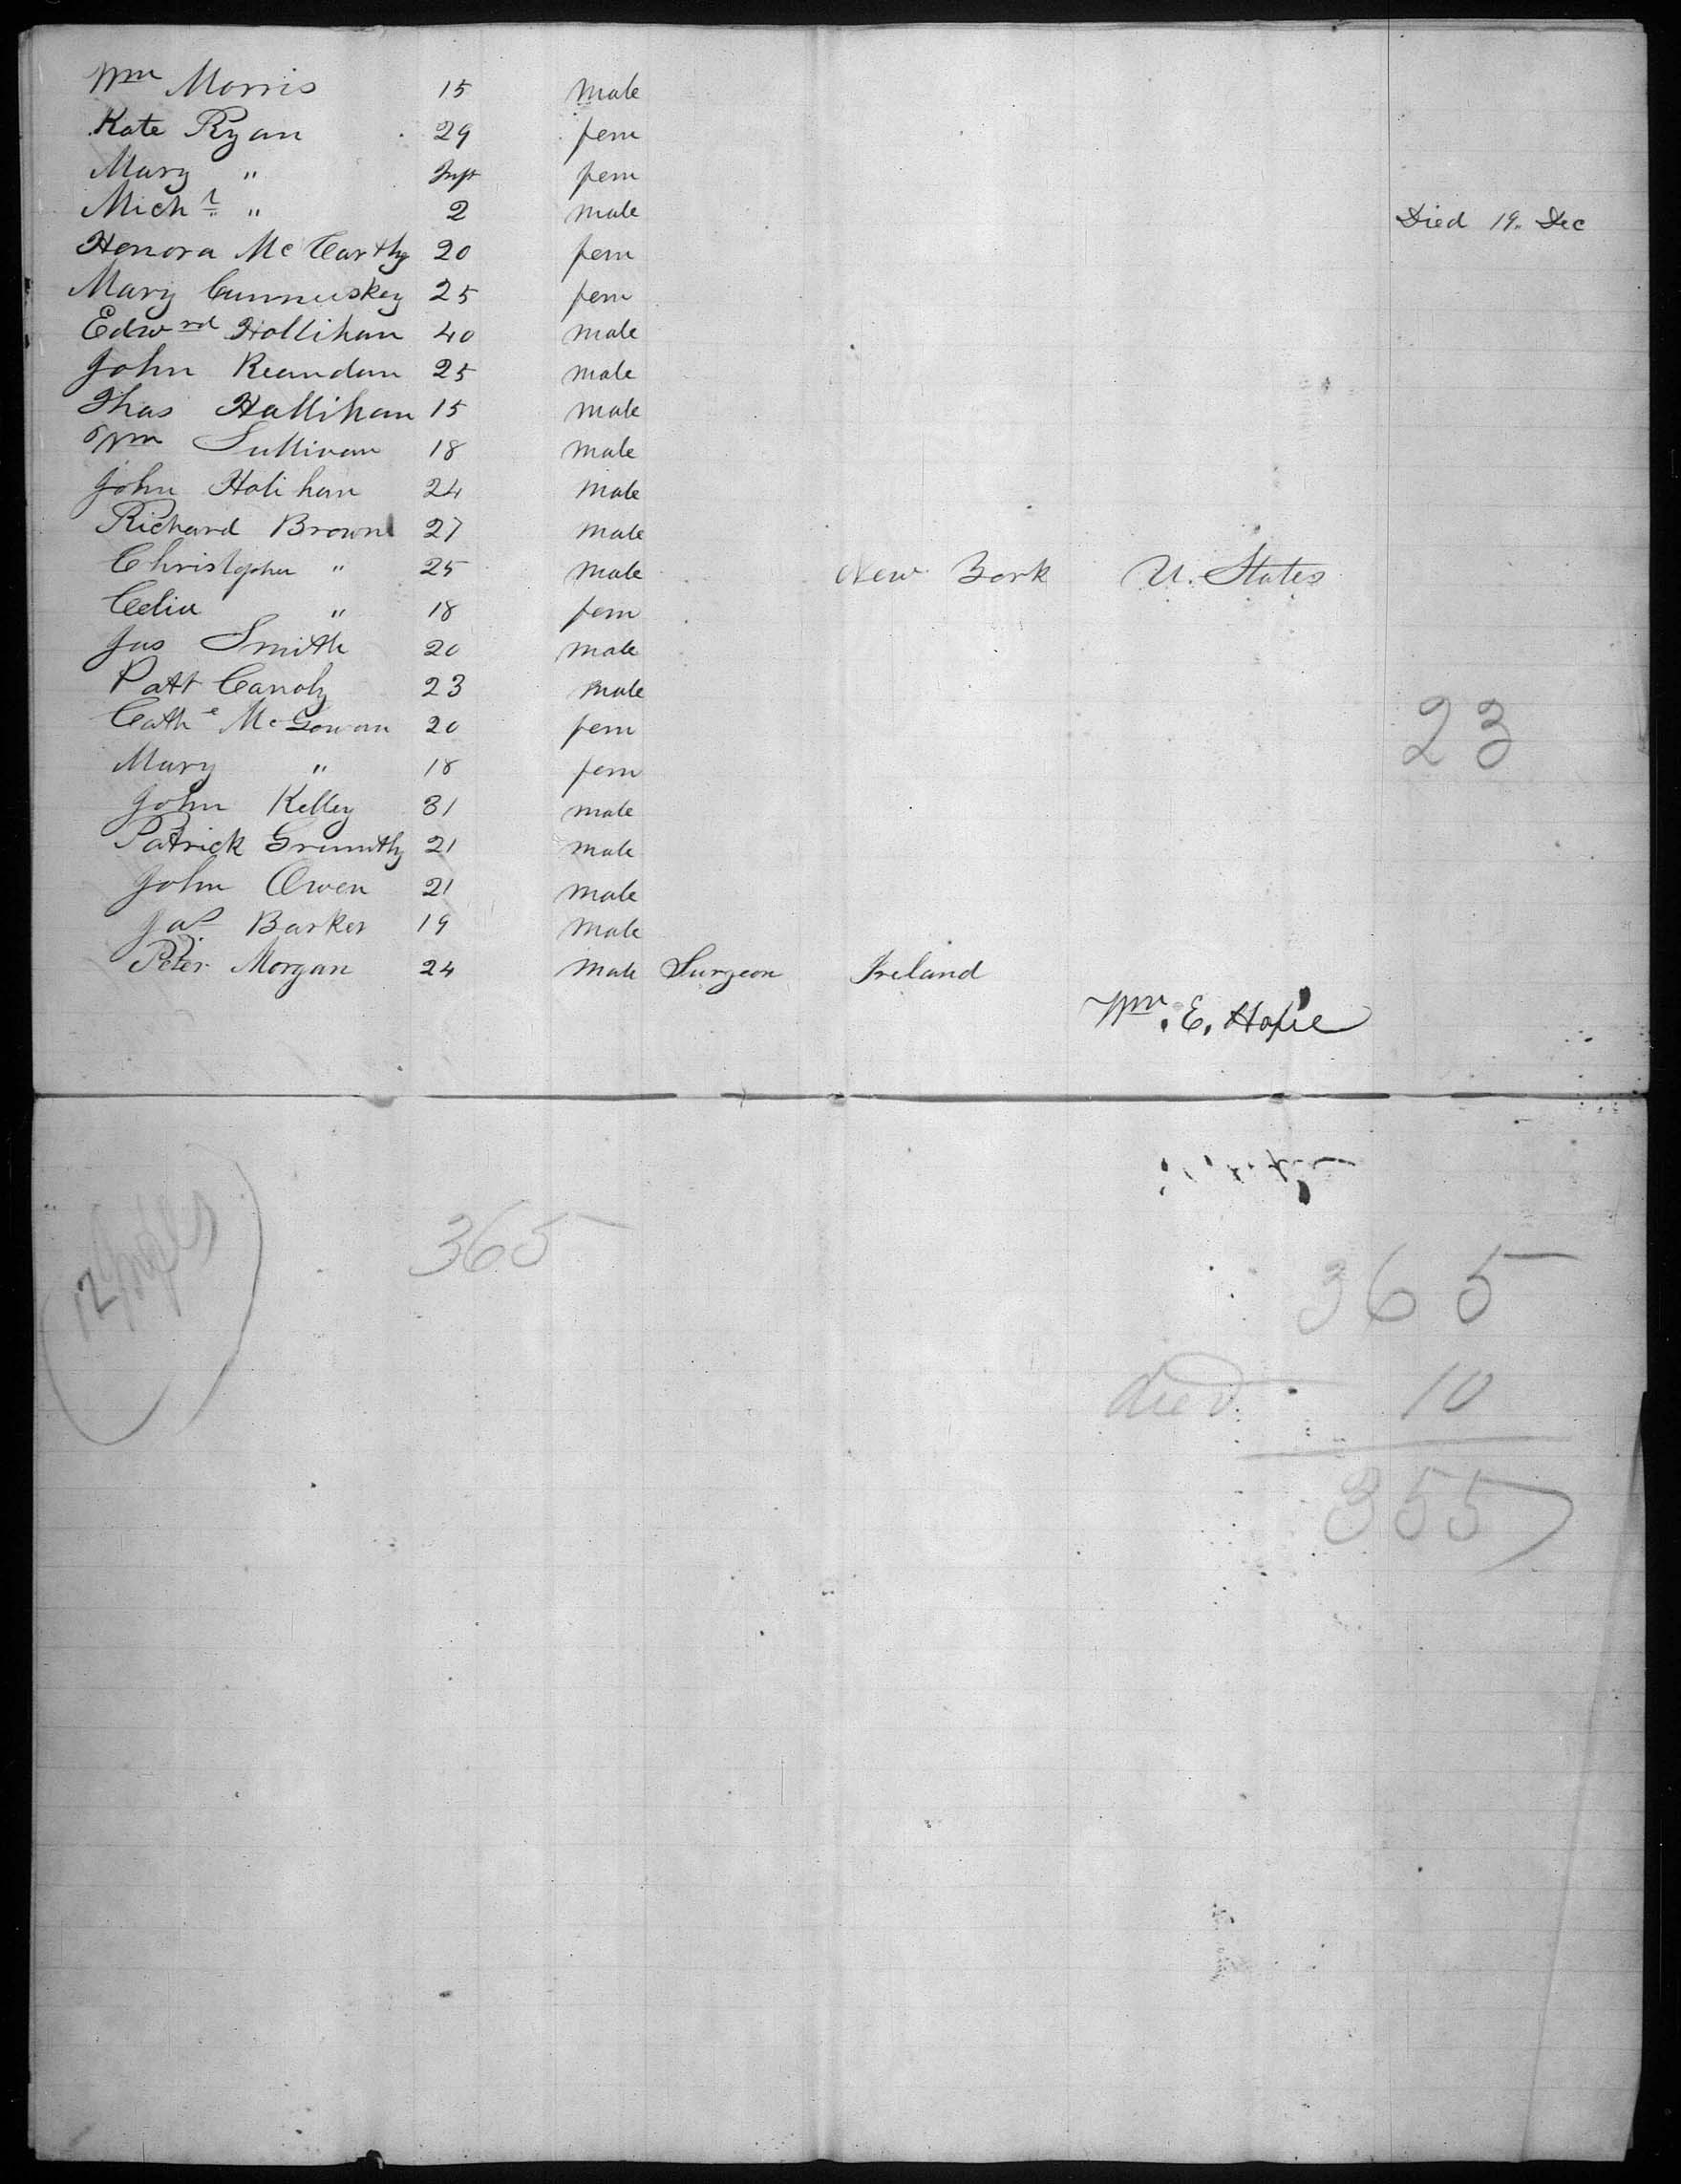 Wm Morris 15 male
Kate Ryan 29 fem
Mary " Inft fem
Michl " 2 male Died 19. Dec
Honora McCarthy 20 fem
Mary 25 fem
Edwrd Hollihan 40 male
John Reandan 25 male
Thos Hallihan 15 male
Wm Sullivan 18 male
John Holihan 24 male
Richard Brown 27 male
Christopher " 25 male New York U. States
Celia " 18 fem
Jas Smith 20 male
Patt 23 male
Cathe McGowan 20 fem 23
Mary " 18 fem
John Kelley 31 male
Patrick 21 male
John Owen 21 male
Jas Barker 19 male
Peter Morgan 24 male Surgeon Ireland
Wm. E.
12
365
365
died 10
355